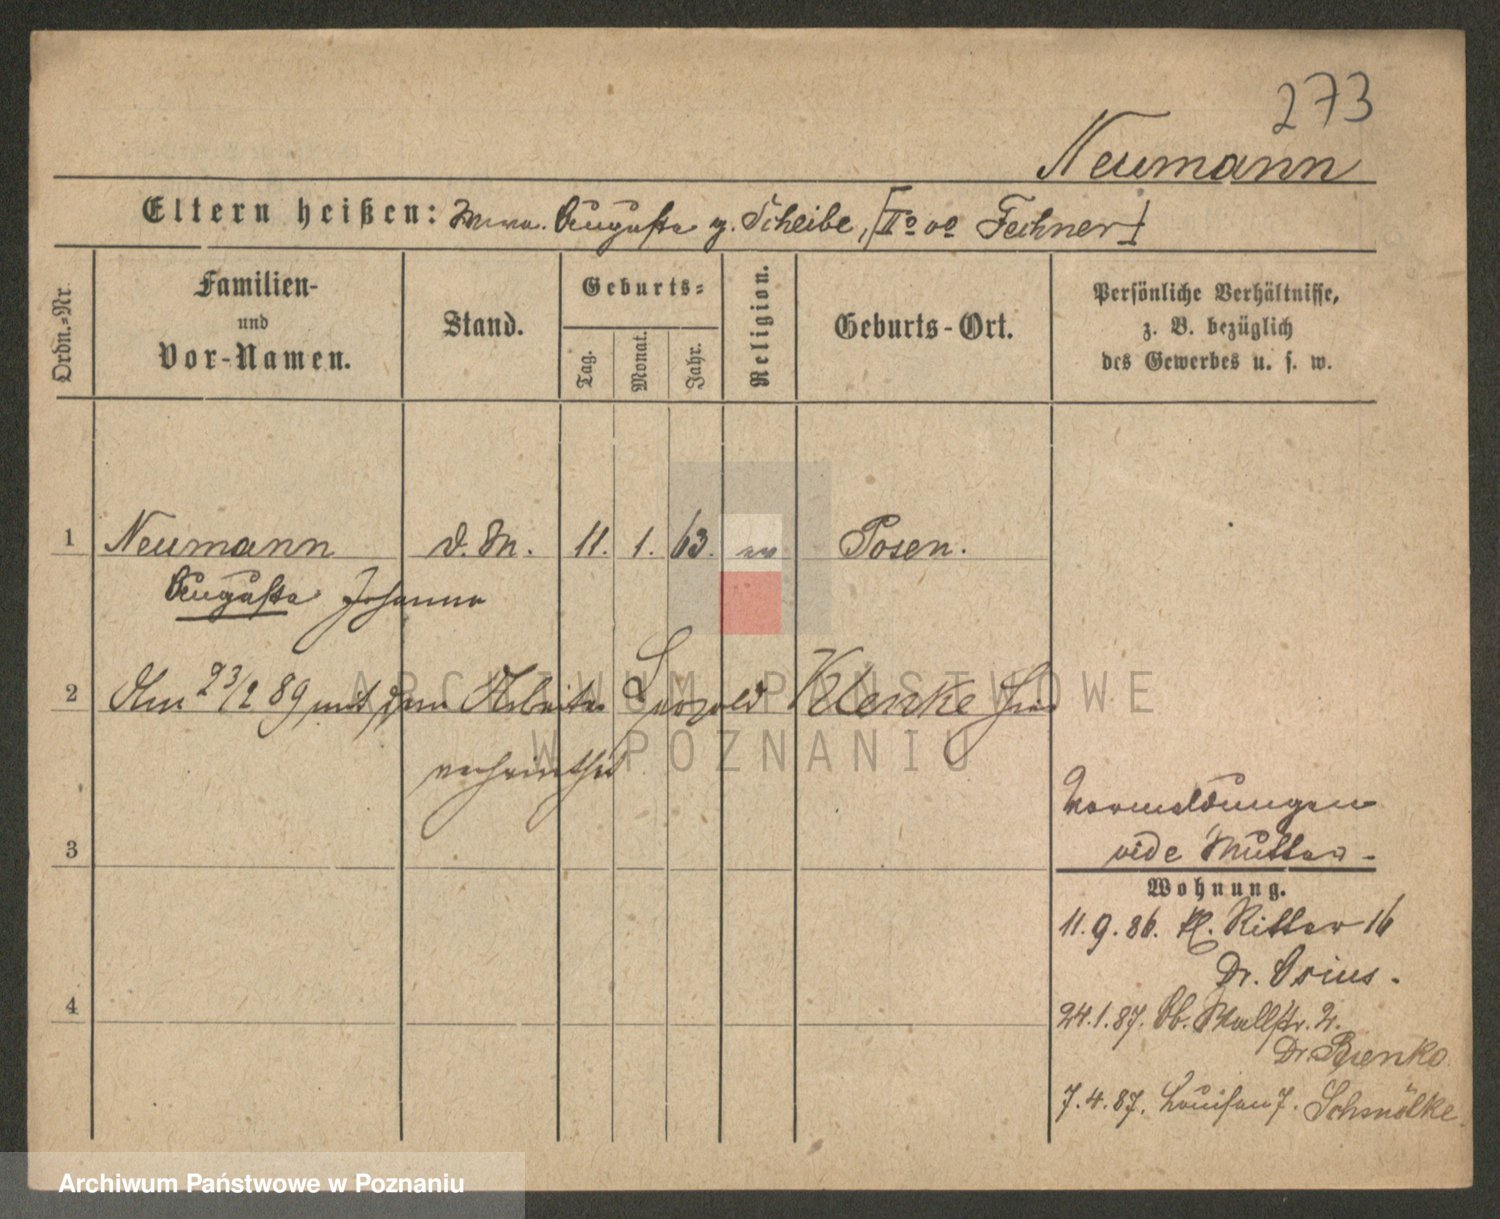 273
Neumann
Eltern heißen: Wwe. Auguste g. Scheibe, [IIo vo Fechner]
Ordn.-Nr.
Familien-
und
Vor-Namen.
Stand.
Geburts-
Tag.
Monat.
Jahr.
Religion.
Geburts-Ort.
Persönliche Verhältnisse,
z. B. bezüglich
des Gewerbes u. s. w.
1 Neumann d. M. 11. 1. 63. ev Posen.
Auguste Johanna
2 Am 23/2 89 mit dem Arbeiter Leopold Klenke hier
verheirathet
3
4
Vormeldungen
vide Mutter.
Wohnung.
11.9.86. Kl. Ritter 16
Dr. Osius.
24.1.87. Ob. Wallstr. 2.
Dr. Bienko
7.4.87. Louisen 7. Schmölke.
ARCHIWUM PAŃSTWOWE
W POZNANIU
Archiwum Państwowe w Poznaniu